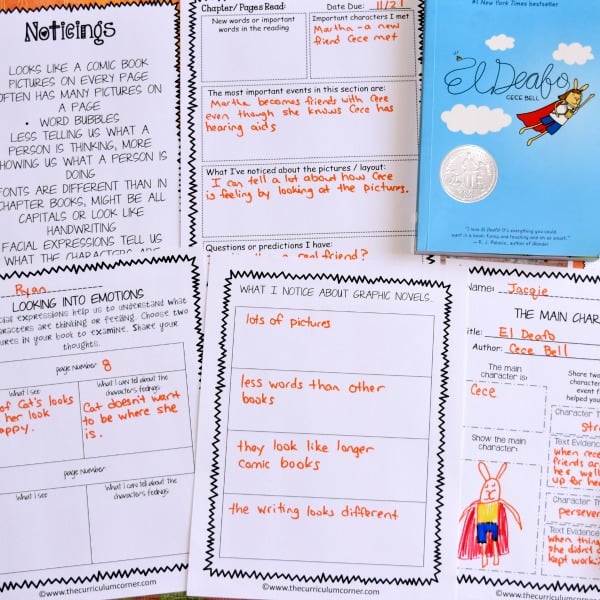 Noticings
LOOKS LIKE A COMIC BOOK
PICTURES ON EVERY PAGE
OFTEN HAS MANY PICTURES ON
A PAGE
• WORD BUBBLES
LESS TELLING US WHAT A
PERSON IS THINKING, MORE
SHOWING US WHAT A PERSON IS
DOING
FONTS ARE DIFFERENT THAN IN
CHAPTER BOOKS, MIGHT BE ALL
CAPITALS OR LOOK LIKE
HANDWRITING
FACIAL EXPRESSIONS TELL US
WHAT THE CHARACTERS ARE
Chapter/ Pages Read:
Date Due: 11/21
New words or important
words in the reading
Important characters I met
Martha - a new
friend Cece met
The most important events in this section are:
Martha becomes friends with Cece
even though she knows Cece has
hearing aids
What I've noticed about the pictures / layout:
I can tell a lot about how Cece
is feeling by looking at the pictures.
Questions or predictions I have:
real friend?
#1 New York Times bestseller
El Deafo
CECE BELL
"I love El Deafo! It's everything you could
want in a book: funny and touching and oh so smart."
— R. J. Palacio, author of Wonder
Ryan
LOOKING INTO EMOTIONS
expressions help us to understand what
characters are thinking or feeling. Choose two
in your book to examine. Share your
thoughts.
page Number 8
What I see
What I can tell about the
character's feelings:
of Cat's looks
her look
Cat doesn't want
to be where she
is.
page Number
What I see
What I can tell about the
character's feelings:
©www.thecurriculumcorner.com
WHAT I NOTICE ABOUT GRAPHIC NOVELS...
lots of pictures
less words than other
books
they look like longer
comic books
the writing looks different
©www.thecurriculumcorner.com
Name: Jasgie
THE MAIN
Title: El Deafo
Author: Cece Bell
The main
character is:
Cece
Share two
Show the main
character:
Text Evidence
when
friends
up for
Text Evidence
when
she didn't
kept work
©www.thecurriculumcorner